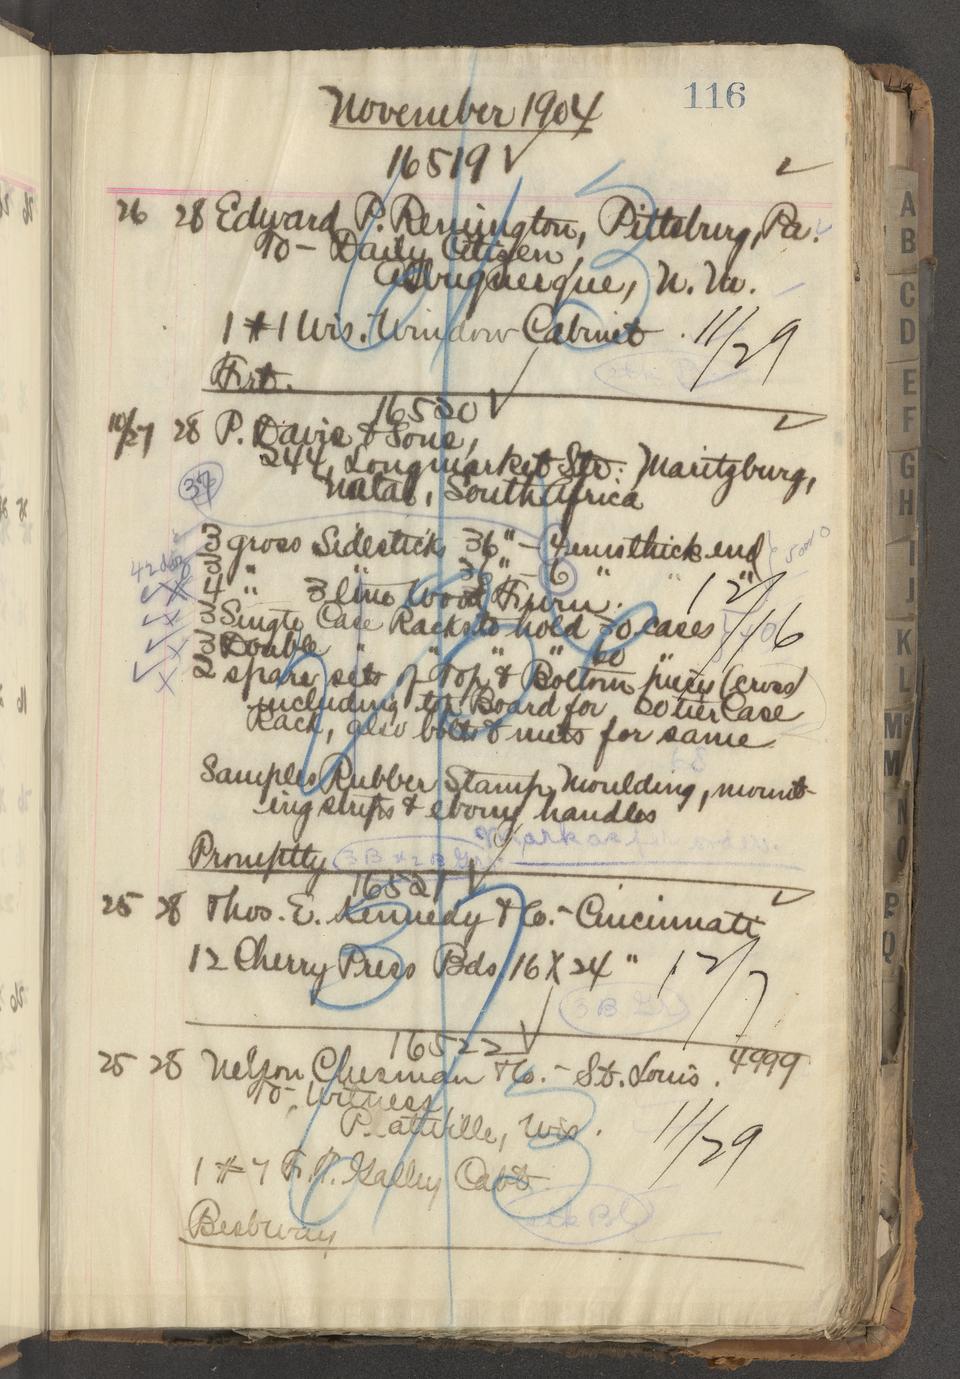 116
November 1904
16519 √
26 28 Edward P. Remington, Pittsburg, Pa.
To - Daily Citizen
Albuquerque, N. M.
1 #1 Wis. Window Cabinet 11/29
Frt.
16520 √
10/27 28 P. Davis & Sons,
244, Longmarket Str. Maritzburg,
Natal, South Africa
37
3 gross Sidestick 36" - 4 ems thick end
2 " " 36" - 6 " " "
4 " 3 line Wood Furn. 12/16
3 Single Case Racks to hold 30 cases
3 Double " " " " 60 "
2 spare sets of Top & Bottom pieces (cross)
including top Board for 30 tier Case
Rack, also bolts & nuts for same
Samples Rubber Stamp Moulding, mount-
ing strips & ebony handles
Promptly
16521 √
25 28 Thos. E. Kennedy & Co. - Cincinnati
12 Cherry Press Bds. 16 X 24" 12/7
3 B Gr
16522 √
25 28 Nelson Chesman & Co. - St. Louis. 4999
To - Witness
Platteville, Wis. 11/29
1 #7 F. P. Galley Cabt.
Bestway